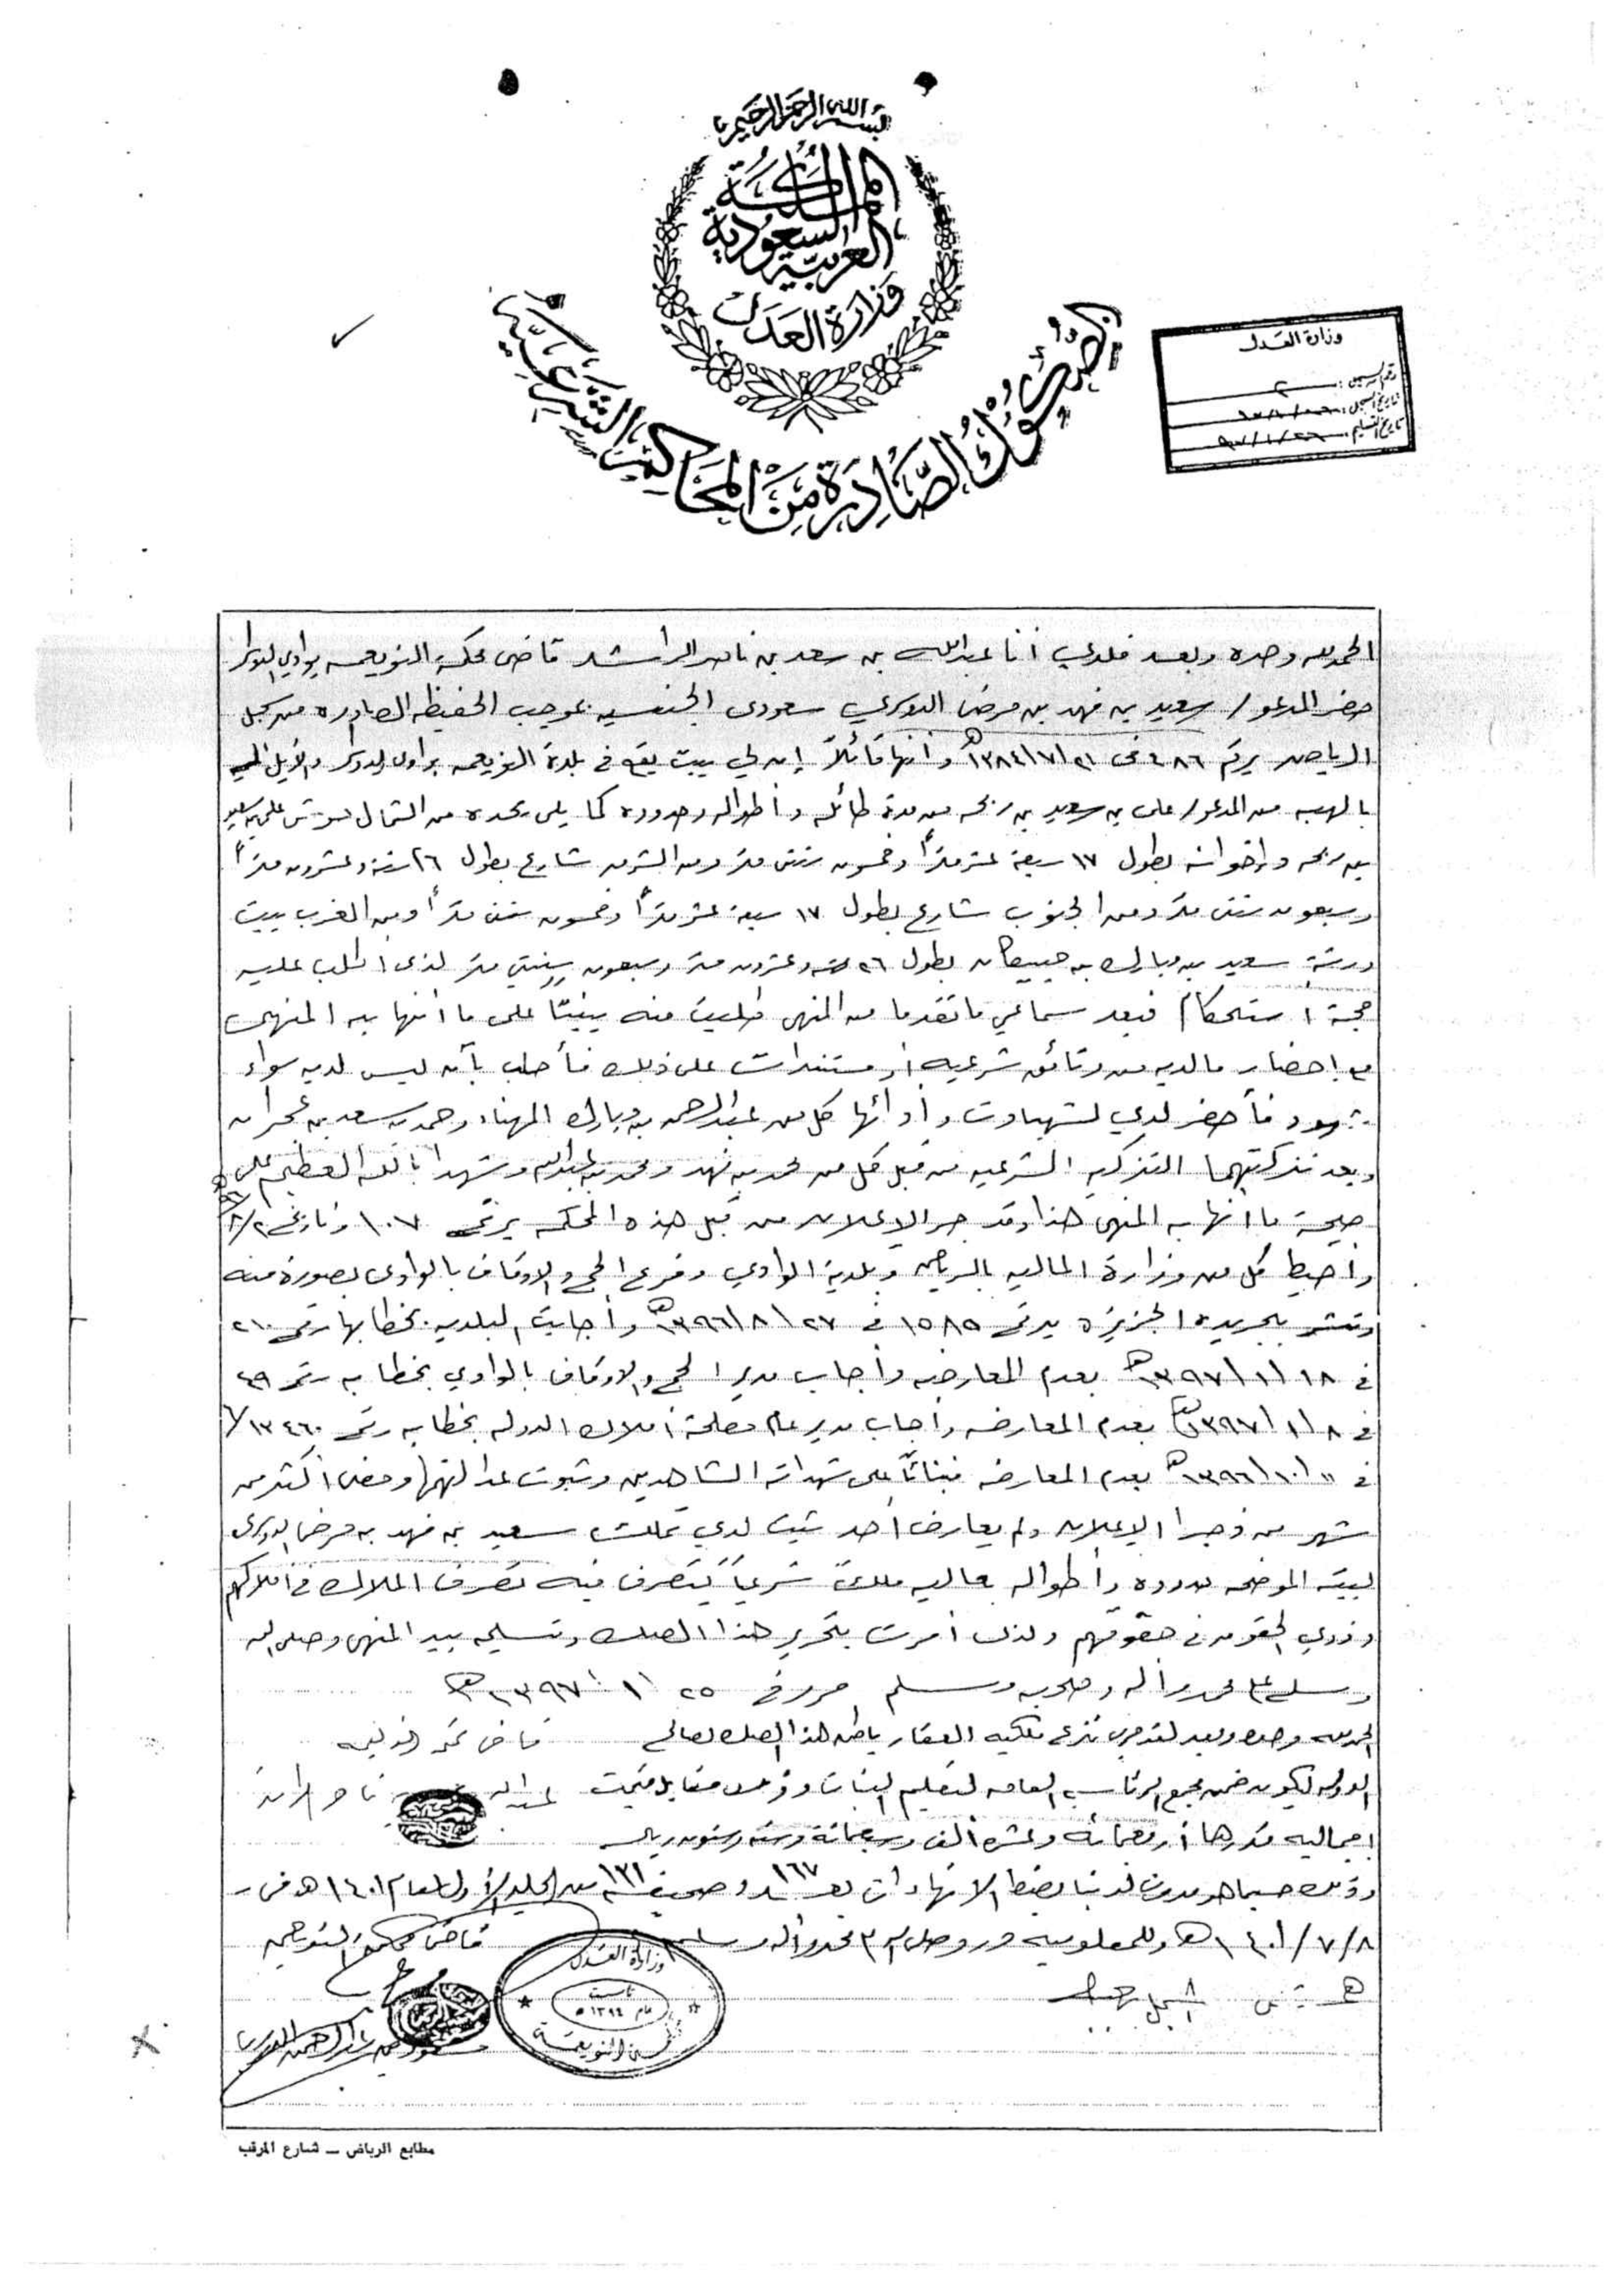 بسم الله الرحمن الرحيم
المملكة
العربية السعودية
وزارة العدل
الصكوك الصادرة من المحاكم الشرعية
وزارة العدل
رقم السجل : ٢
تاريخ السجل :
تاريخ التسليم :
الحمد لله وحده وبعد فلدي أنا عبدالله بن سعد بن ناصر الراشد قاضي محكمة النويعمه بوادي الدواسر
حضر المدعو / سعيد بن فهد بن مرضي الدوسري سعودي الجنسيه بموجب الحفيظه الصادره من سجل
الرياض برقم ٤٨٦ في ٢١/٧/١٣٨٤هـ وأنها قائلاً إن لي بيت يقع في بلدة النويعمه بوادي الدواسر
بالهبه من المدعو / علي بن سعيد بن من مدة طائله وأطواله وحدوده كما يلي يحده من الشمال علي بن سعيد
بن وإخوانه بطول ١٧ سبعة عشر متراً وخمسون سنتى متر ومن الشرق شارع بطول ٢٦ ستة وعشرون متراً
وسبعون سنتى متر ومن الجنوب شارع بطول ١٧ سبعة عشر متراً وخمسون سنتى متراً ومن الغرب بيت
ورثة سعيد بن مبارك بن بطول ٢٦ ستة وعشرون متر وسبعون سنتي متر لذى اطلب عليه
حجة استحكام فبعد سماعي ما تقدما من المنهى طلبت منه بينتاً على ما انها به المنهى
مع إحضار مالديه من وثائق شرعيه أو مستندات على ذلك فأجاب بأنه ليس لديه سواء
شهود فأحضر لدي لشهادت وأدائها كل من عبدالرحمن بن مبارك المهناء وحمد بن سعد بن
وبعد تزكيتهما التزكيه الشرعيه من قبل كل من محمد بن فهد ومحمد بن عبدالله وشهدا بالله العظيم على
صحة ما انها به المنهى هذا وقد جر الإعلان من قبل هذه المحكمه برقم ١٠٧ وتاريخ
وأحيط كل من وزارة الماليه بالرياض وبلدية الوادي وفرع الحج والاوقاف بالوادي بصورة منه
ونشر بجريدة الجزيره برقم ١٥٨٥ في ٢٧/٨/١٣٩٦هـ وأجابت البلديه بخطابها رقم ٢١٠
في ١٨/١/١٣٩٧هـ بعدم المعارضه وأجاب مدير الحج والاوقاف بالوادي بخطابه رقم ٤٩
في ٨/١/١٣٩٧هـ بعدم المعارضه وأجاب مدير عام مصلحة أملاك الدوله بخطابه رقم ١٣٤٦٠/
في ١١/١٠/١٣٩٦هـ بعدم المعارضه فبنائاً على شهدات الشاهدين وثبوت عدالتهما ومضى أكثر من
شهر من وجرا الإعلان ولم يعارض أحد ثبت لدي تملك سعيد بن فهد بن مرضي الدوسري
لبيته الموضحه حدوده وأطواله بعاليه ملكً شرعياً يتصرف فيه تصرف الملاك في أملاكهم
وذوي الحقوق في حقوقهم ولذى أمرت بتحرير هذا الصك وتسليمه بيد المنهى وصلى الله
وسلم على محمد وآله وصحبه وسلم حرر في ٢٥/١/١٣٩٧هـ
الحمد لله وحده وبعد لقد جرى نزع ملكيه العقار باطن هذا الصك لصالح قاضي محكمة النويعمه
الدوله ليكون ضمن مجمع الرئاسه العامه لتعليم البنات وذلك مقابل قيمت عبدالله بن سعد بن ناصر الراشد
إجماليه قدرها أربعمائه وعشره ألف وسبعمائة وسته وستون ريال
وذلك حسبما هو مدون لدينا بضبط الانهاءات بعدد ١٦٧ وصحيفه ١٢١ من المجلد الأول لعام ١٤٠١هـ في
٨/٧/١٤٠١هـ وللمعلوميه حرر وصلى الله على محمد وآله وسلم قاضي محكمة النويعمه
وزارة العدل
تأسست
عام ١٣٩٤هـ
محكمة النويعمة
مطابع الرياض – شارع المرقب